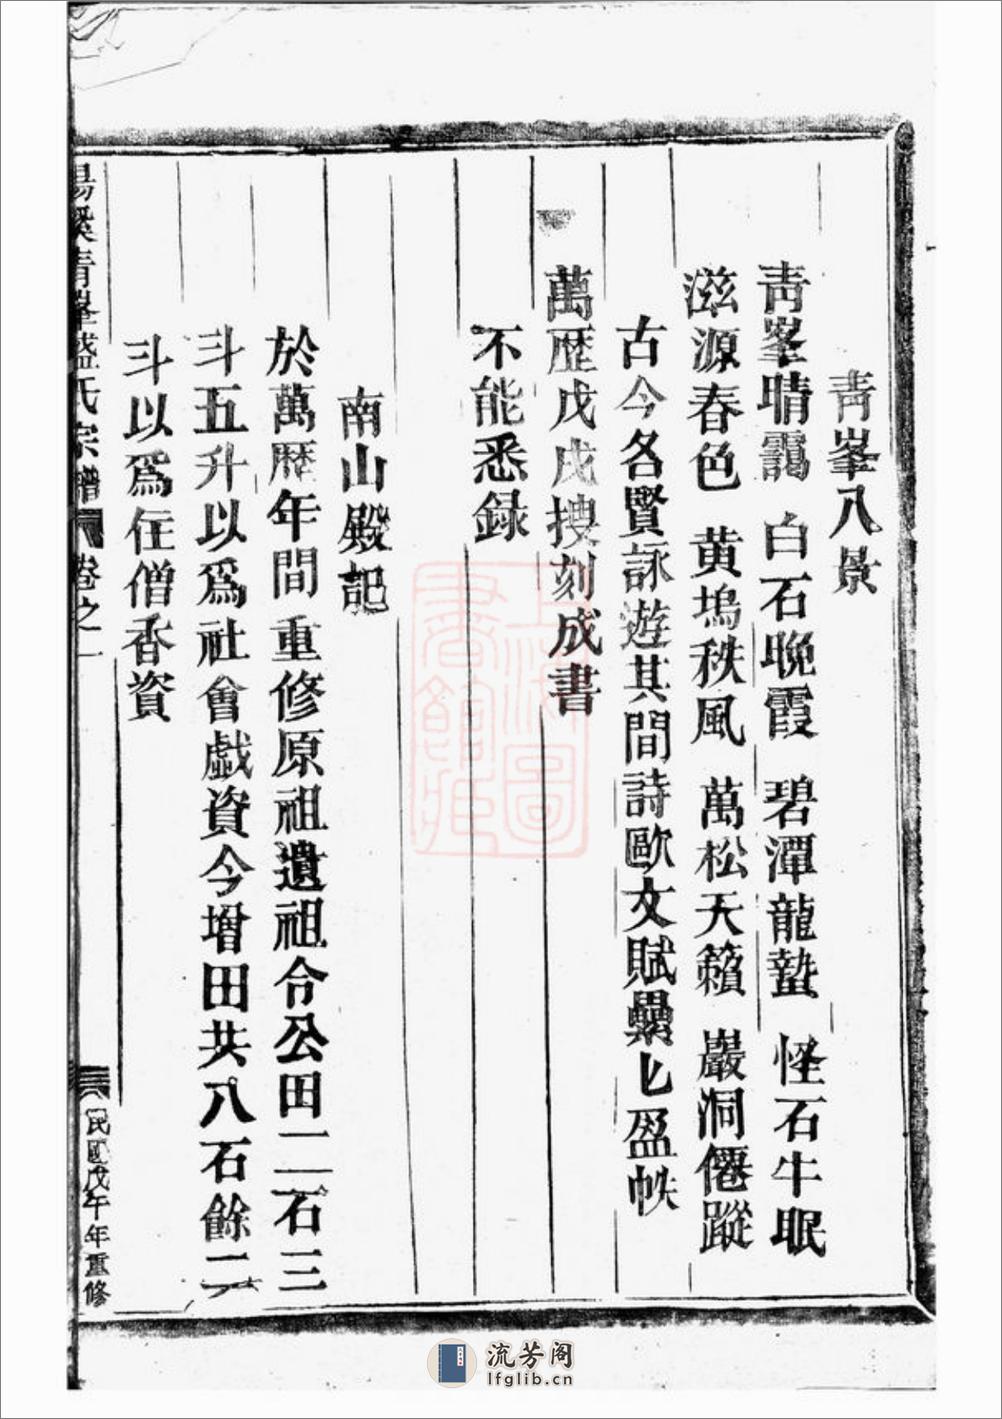 青峯八景
青峯晴靄 白石晚霞 碧潭龍蟄 怪石牛眠
滋源春色 黄塢秩風 萬松天籟 巖洞僊蹤
古今各賢詠遊其間詩歐文賦纍匕盈帙
萬歴戊戌搜刻成書
不能悉録
南山殿記
於萬歴年間重修原祖遺祖令公田二石三
斗五升以爲社會戯資今增田共八石餘二
斗以爲住僧香資
湯溪青峯盛氏宗譜 卷之一 民國戊午年重修
上海圖書館藏
流芳阁
lfglib.cn